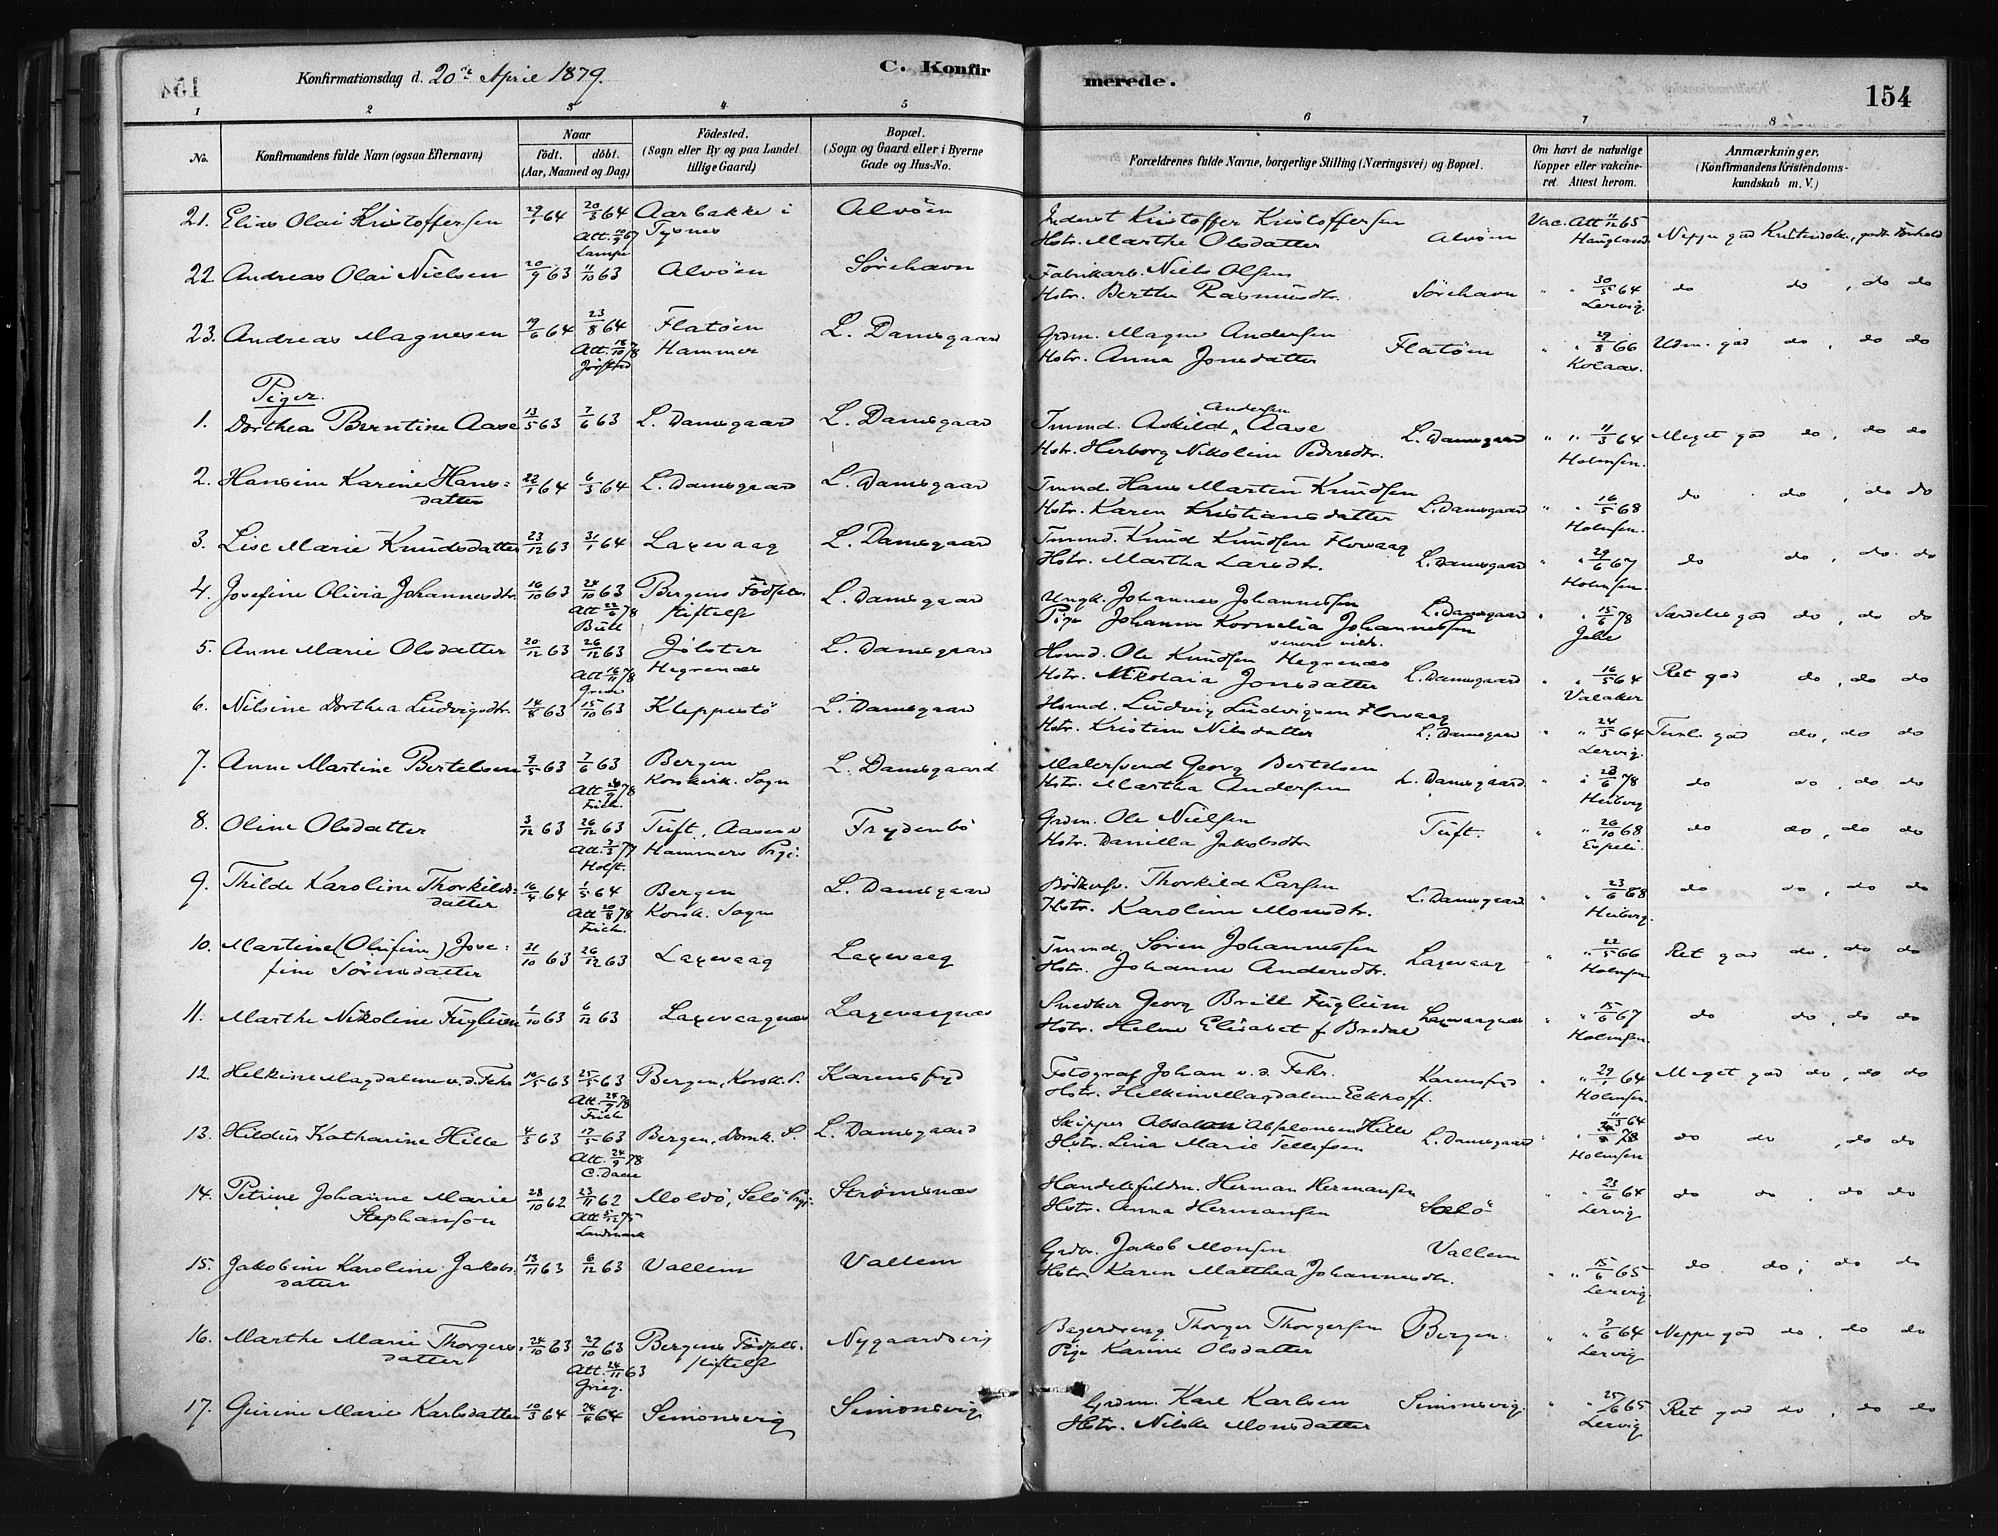 Konfirmationsdag d. 20de April 1879.
C. Konfirmerede.
154
1 2 3 4 5 6 7 8
No.
Konfirmandens fulde Navn (ogsaa Efternavn)
Naar
født. døbt.
(Aar, Maaned og Dag)
Fødested.
(Sogn eller By og paa Landet tillige Gaard)
Bopæl.
(Sogn og Gaard eller i Byerne Gade og Hus-No.
Forældrenes fulde Navne, borgerlige Stilling (Næringsvei) og Bopæl.
Om havt de naturlige Kopper eller vakcineret. Attest herom.
Anmærkninger.
(Konfirmandens Kristendomskundskab m. V.)
21. Elias Olai Kristoffersen 29/1 64 20/3 64 Aarbakke i Tysnes Alvøen
Inderst Kristoffer Kristoffersen
Hstr. Marthe Olsdatter Alvøen Vac. Att 11/12 65 Haugland
22 Andreas Olai Nielsen 20/9 63 11/10 63 Alvøen Sørehavn
Fabrikarb. Niels Olsen
Hstr. Berthe Rasmusdtr. Sørehavn " " 30/5 64 Lervig. do do, do do
23. Andreas Magnesen 19/6 64 23/8 64 Att. 18/10 78 Flatøen Hammer L. Damsgaard
Grdm. Magne Andersen
Hstr. Anna Jonsdatter Flatøen " " 29/8 66 Udm. god do, do do
Piger.
1. Dorthea Berntine Aase 13/5 63 7/6 63 L. Damsgaard L. Damsgaard
Tmmd. Askild Andersen Aase
Hstr. Herborg Nikoline Pedersdtr. L. Damsgaard " " 11/3 64 Holmsen. Meget god do, do do
2. Hansine Karine Hansdatter 22/1 64 6/3 64 L. Damsgaard L. Damsgaard
Tmmd. Hans Marten Knudsen
Hstr. Karen Kristiansdatter L. Damsgaard " " 16/5 68 Holmsen. do do, do do
3. Lise Marie Knudsdatter 23/12 63 31/1 64 Laxevaag L. Damsgaard
Tmmd. Knud Knudsen Florvaag
Hstr. Martha Larsdtr. L. Damsgaard " 29/6 67 Holmsen do do, do do
4. Josefine Olivia Johannesdtr. 16/10 63 24/10 63 Att 22/6 78 Bull Bergens Fødselsstiftelse L. Damsgaard
Ungk. Johannes Johannessen
Pige Johanne Kornelia Johannessen L. Damsgaard " " 15/6 78 Særdeles god do, do do
5. Anne Marie Olsdatter 20/12 63 26/12 63 Att 16/11 78 Jølster Hegrenæs L. Damsgaard
Hsmd. Ole Knudsen Hegrenæs
Hstr. Nikolaia Jonsdatter L. Damsgaard " " 16/5 64 Valaker Ret god do, do do
6. Nilsine Dorthea Ludvigsdtr. 14/8 63 15/10 63 Kleppestø L. Damsgaard
Hsmd. Ludvig Ludvigsen Florvaag
Hstr. Kristine Nilsdatter L. Damsgaard " " 24/5 64 Lervig. god do, do do
7. Anne Martine Bertelsen 9/5 63 7/6 63 Bergen Korskirk. Sogn L. Damsgaard
Malersvend Georg Bertelsen
Hstr. Martha Andersen L. Damsgaard " " 28/6 78 Heiberg do do, do do
8. Oline Olsdatter 3/12 63 26/12 63 Att. 7/3 77 Holst. Tuft, Aasene Hammers Prgj. Frydenbø
Grdm. Ole Nielsen
Hstr. Danilla Jakobsdtr. Tuft. " " 26/10 68 Espeli. do do, do do
9. Thilde Karoline Thorkildsdatter 16/4 64 1/5 64 Att 20/8 78 Frich. Bergen Korsk. Sogn L. Damsgaard
Bødkersv. Thorkild Larsen
Hstr. Karoline Monsdtr. L. Damsgaard " " 23/6 68 Heiberg. do do, do do
10. Martine (Olufine) Josefine Sørensdatter 31/10 63 26/12 63 Laxevaag Laxevaag
Tmmd. Søren Johannessen
Hstr. Johanne Andersdtr. Laxevaag " " 22/5 66 Holmsen Ret god do, do do
11. Marthe Nikoline Fuglium 1/10 63 6/12 63 Laxevaagnes Laxevaagnes
Snedker Georg Brill Fuglium
Hstr. Helene Elisabet f. Bredal Laxevaagnes " " 15/6 67 Holmsen. do do, do do
12 Helkine Magdalene v. d. Fehr 10/5 63 25/5 63 Att. 24/9 78 Frich Bergen, Korsk. S. Karensfryd
Fotograf Johan v. d. Fehr.
Hstr. Helkine Magdalene Eckhoff. Karensfryd " " 29/1 64 Holmsen. Meget god do, do do
13. Hildur Katharine Hille 4/3 63 17/5 63 Att. 24/9 78 C. Daae Bergen, Domk. S. L. Damsgaard
Skipper Absalon Absalonsen Hille
Hstr. Lina Marie Tellefsen L. Damsgaard 11/3 64 Holmsen do do, do do
14. Petrine Johanne Marie Stephanson 28/10 62 23/11 62 Att 5/12 75 Landmark Moldø, Selø Prgj. Strømsnæs
Handelsfuldm. Herman Hermansen
Hstr. Anna Hermansen Selø " " 23/6 64 Lervig do do, do do
15. Jakobine Karoline Jakobsdatter 13/11 63 6/12 63 Vallem Vallem
Grdbr. Jakob Monsen Vallem
Hstr. Karen Matthea Johannesdtr. " " 15/6 65 Lervig. do do, do do
16. Marthe Marie Thorgersdatter 24/10 63 29/10 63 Att. 24/11 63 Grieg. Bergens Fødselsstiftelse Nygaardsvig
Bagerdreng Thorger Thorgersen Bergen.
Pige Karine Olsdatter " " 7/6 64 Lervig Neppe god do, do do
17. Gurine Marie Karlsdatter 10/3 64 24/4 64 Simonsvig Simonsvig
Grdm. Karl Karlsen Simonsvig.
Hstr. Nilske Monsdatter " " 25/6 65 Lervig Ret god do, do do